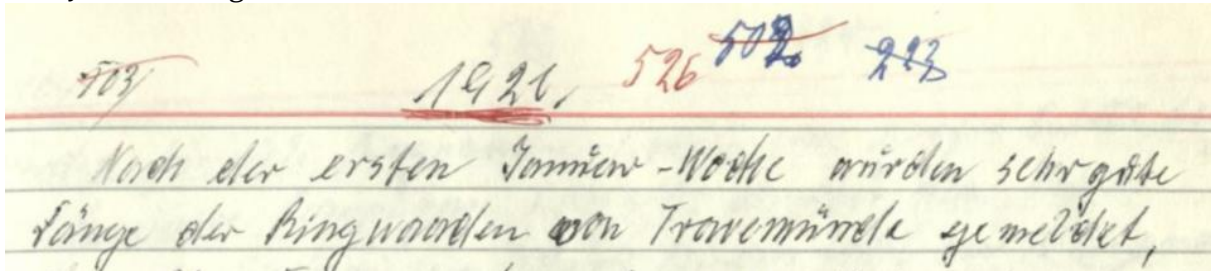 503 1921, 526 502 223
Nach der ersten Januar-Woche wurden sehr gute
Fänge der Ringwaden von Travemünde gemeldet,